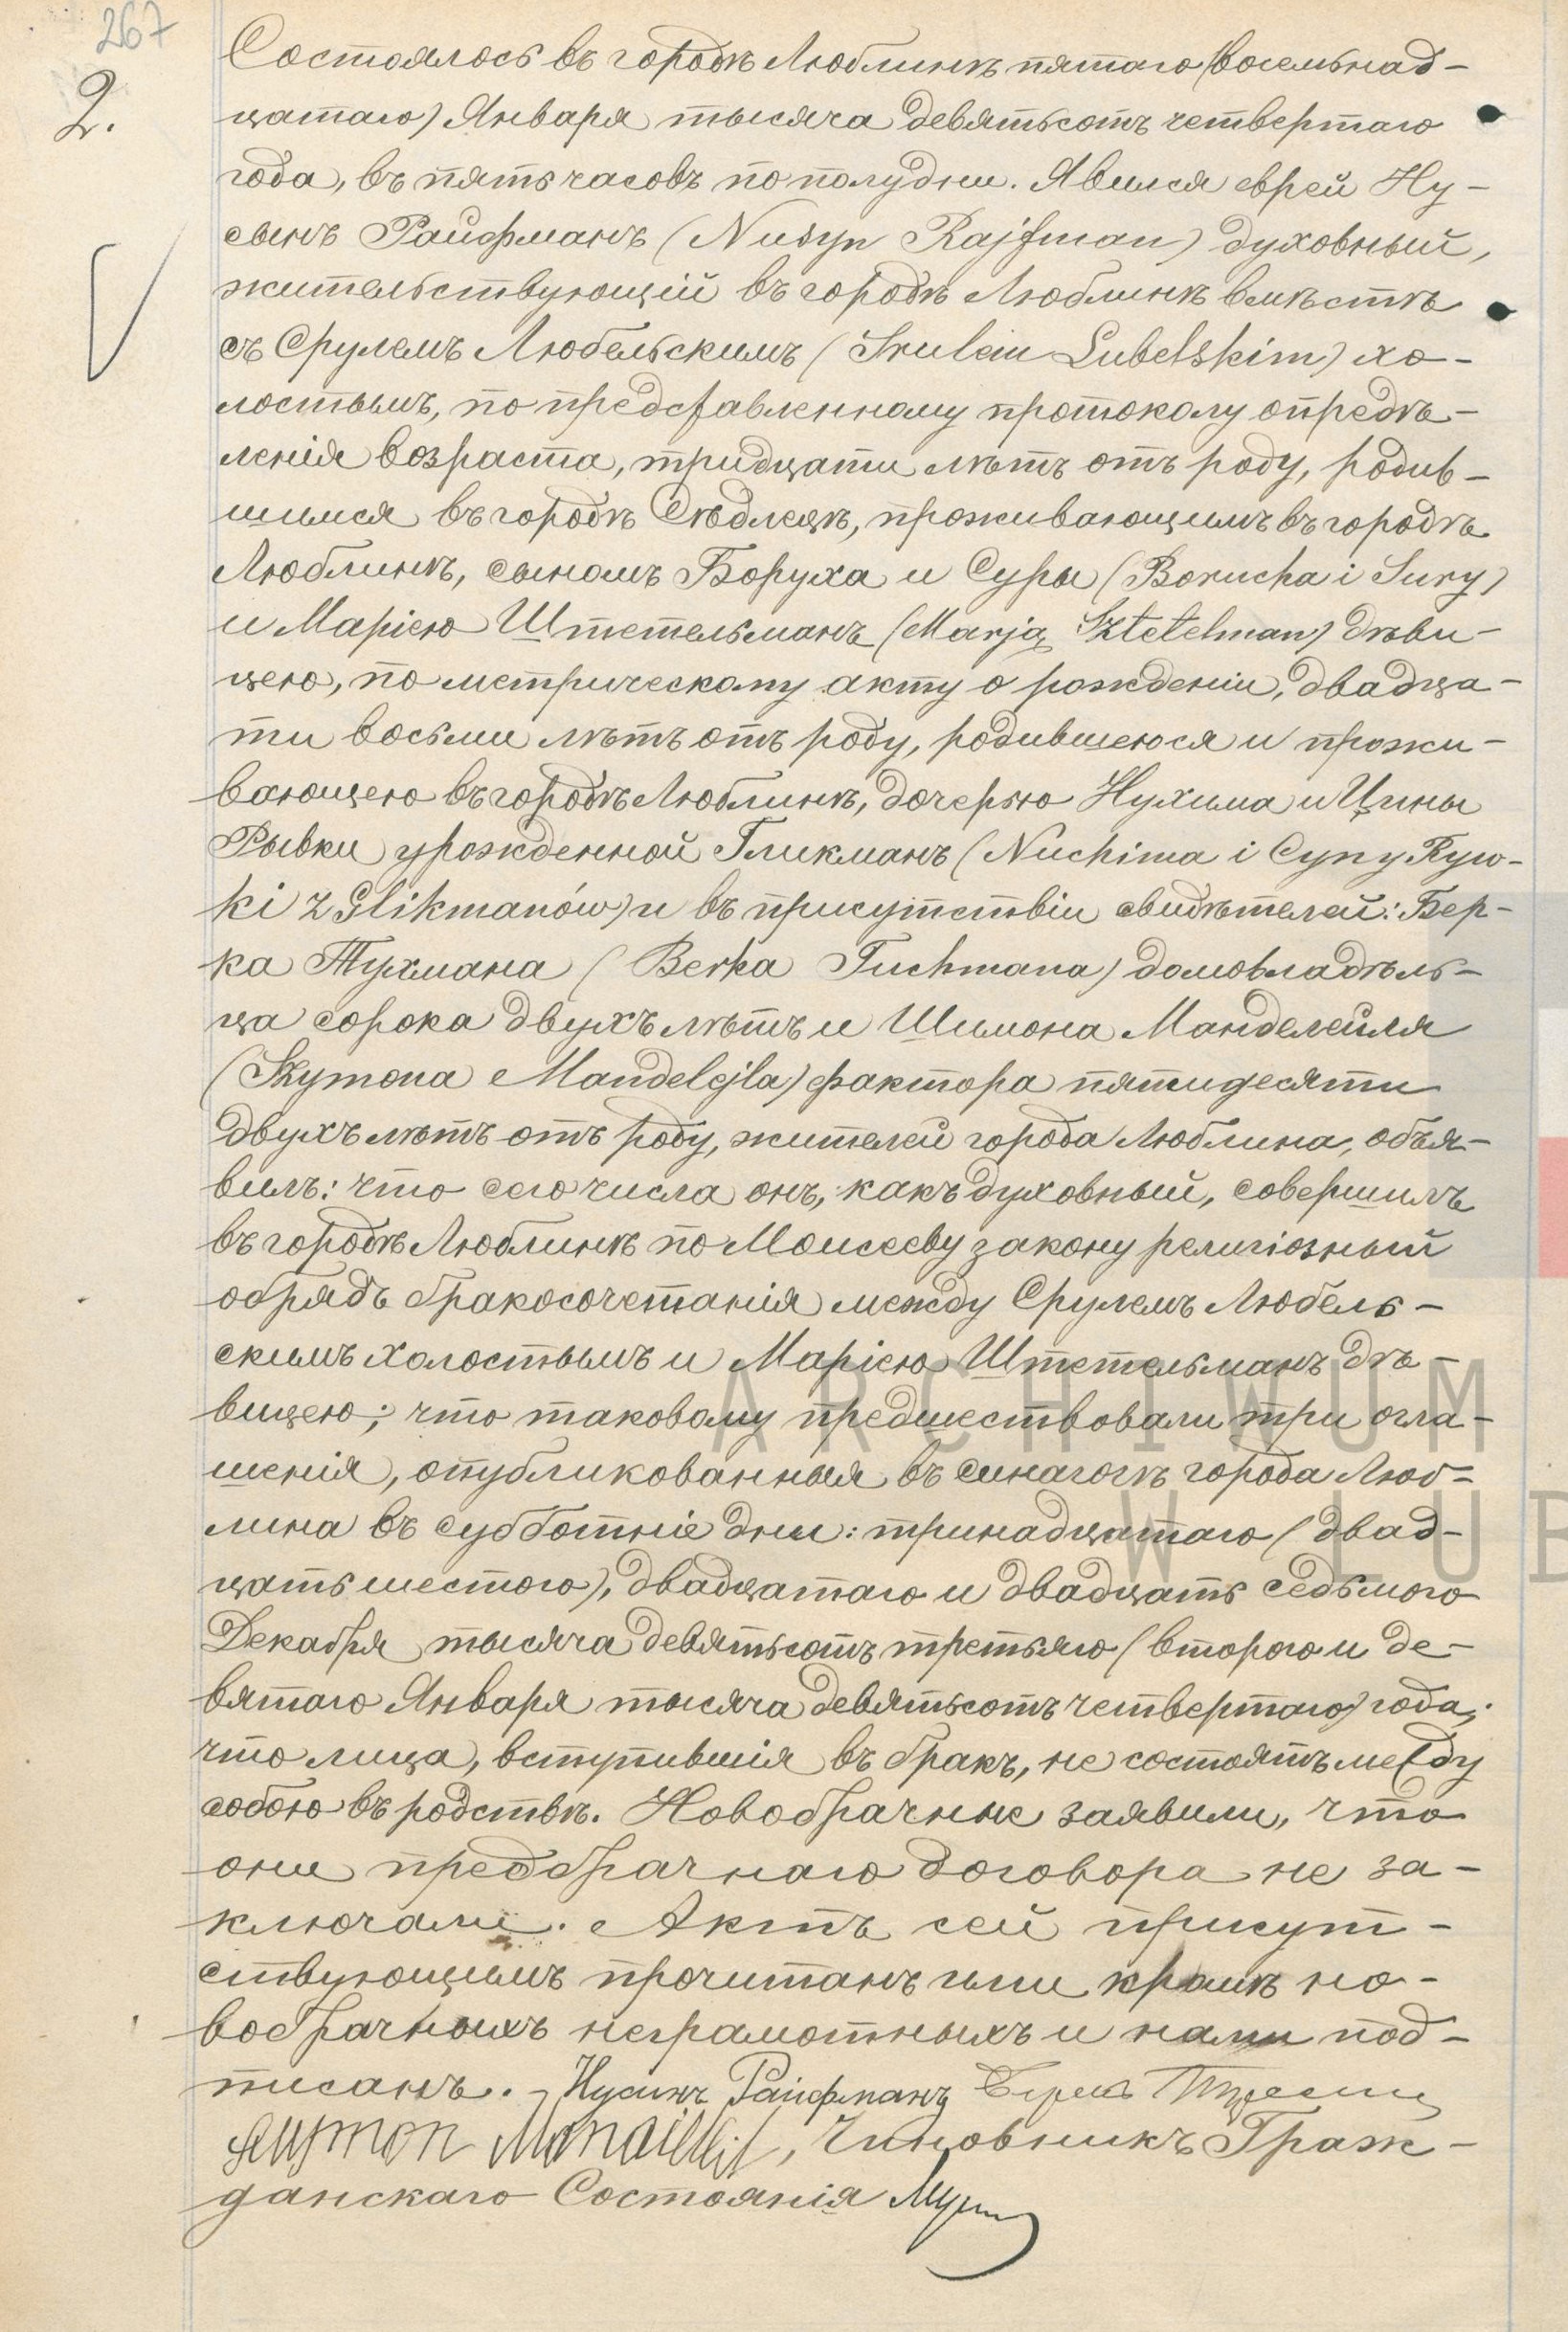 267
2.
Состоялось въ городѣ Люблинѣ пятаго (восемьнад-
цатаго) Января тысяча девятьсотъ четвертаго
года, въ пять часовъ по полудни. Явился еврей Ну-
сынъ Райфманъ (Nusyn Rajfman) духовный,
жительствующій въ городѣ Люблинѣ вмѣстѣ
съ Срулемъ Любельскимъ (Srulem Lubelskim) хо-
лостымъ, по представленному протоколу опредѣ-
ленія возраста, тридцати лѣтъ отъ роду, родив-
шимся въ городѣ Сѣдлецѣ, проживающимъ въ городѣ
Люблинѣ, сыномъ Боруха и Суры (Borucha i Sury)
и Маріею Штетельманъ (Marją Sztetelman) дѣви-
цею, по метрическому акту о рожденіи, двадца-
ти восьми лѣтъ отъ роду, родившеюся и прожи-
вающею въ городѣ Люблинѣ, дочерью Нухима и Цины
Рывки урожденной Гликманъ (Nuchima i Cyny Ryw-
ki z Glikmanów) и въ присутствіи свидѣтелей: Бер-
ка Тухмана (Berka Tuchmana) домовладѣль-
ца сорока двухъ лѣтъ и Шимона Манделейля
(Szymona Mandelejla) фактора пятидесяти
двухъ лѣтъ отъ роду, жителей города Люблина, объя-
вилъ: что сего числа онъ, какъ духовный, совершилъ
въ городѣ Люблинѣ по Моисееву закону религіозный
обрядъ бракосочетанія между Срулемъ Любель-
скимъ холостымъ и Маріею Штетельманъ дѣ-
вицею; что таковому предшествовали три огла-
шенія, опубликованныя въ синагогѣ города Люб-
лина въ субботніе дни: тринадцатаго (двад-
цать шестого), двадцатаго и двадцать седьмого
Декабря тысяча девятьсотъ третьяго (второго и де-
вятаго Января тысяча девятьсотъ четвертаго) года;
что лица, вступившія въ бракъ, не состоятъ между
собою въ родствѣ. Новобрачные заявили, что
они предбрачнаго договора не за-
ключали. Актъ сей присут-
ствующимъ прочитанъ ими кромѣ но-
вобрачныхъ неграмотныхъ и нами под-
писанъ. - Нусинъ Райфманъ
Szymon, Чиновникъ Граж-
данскаго Состоянія
ARCHIWUM
W LUB